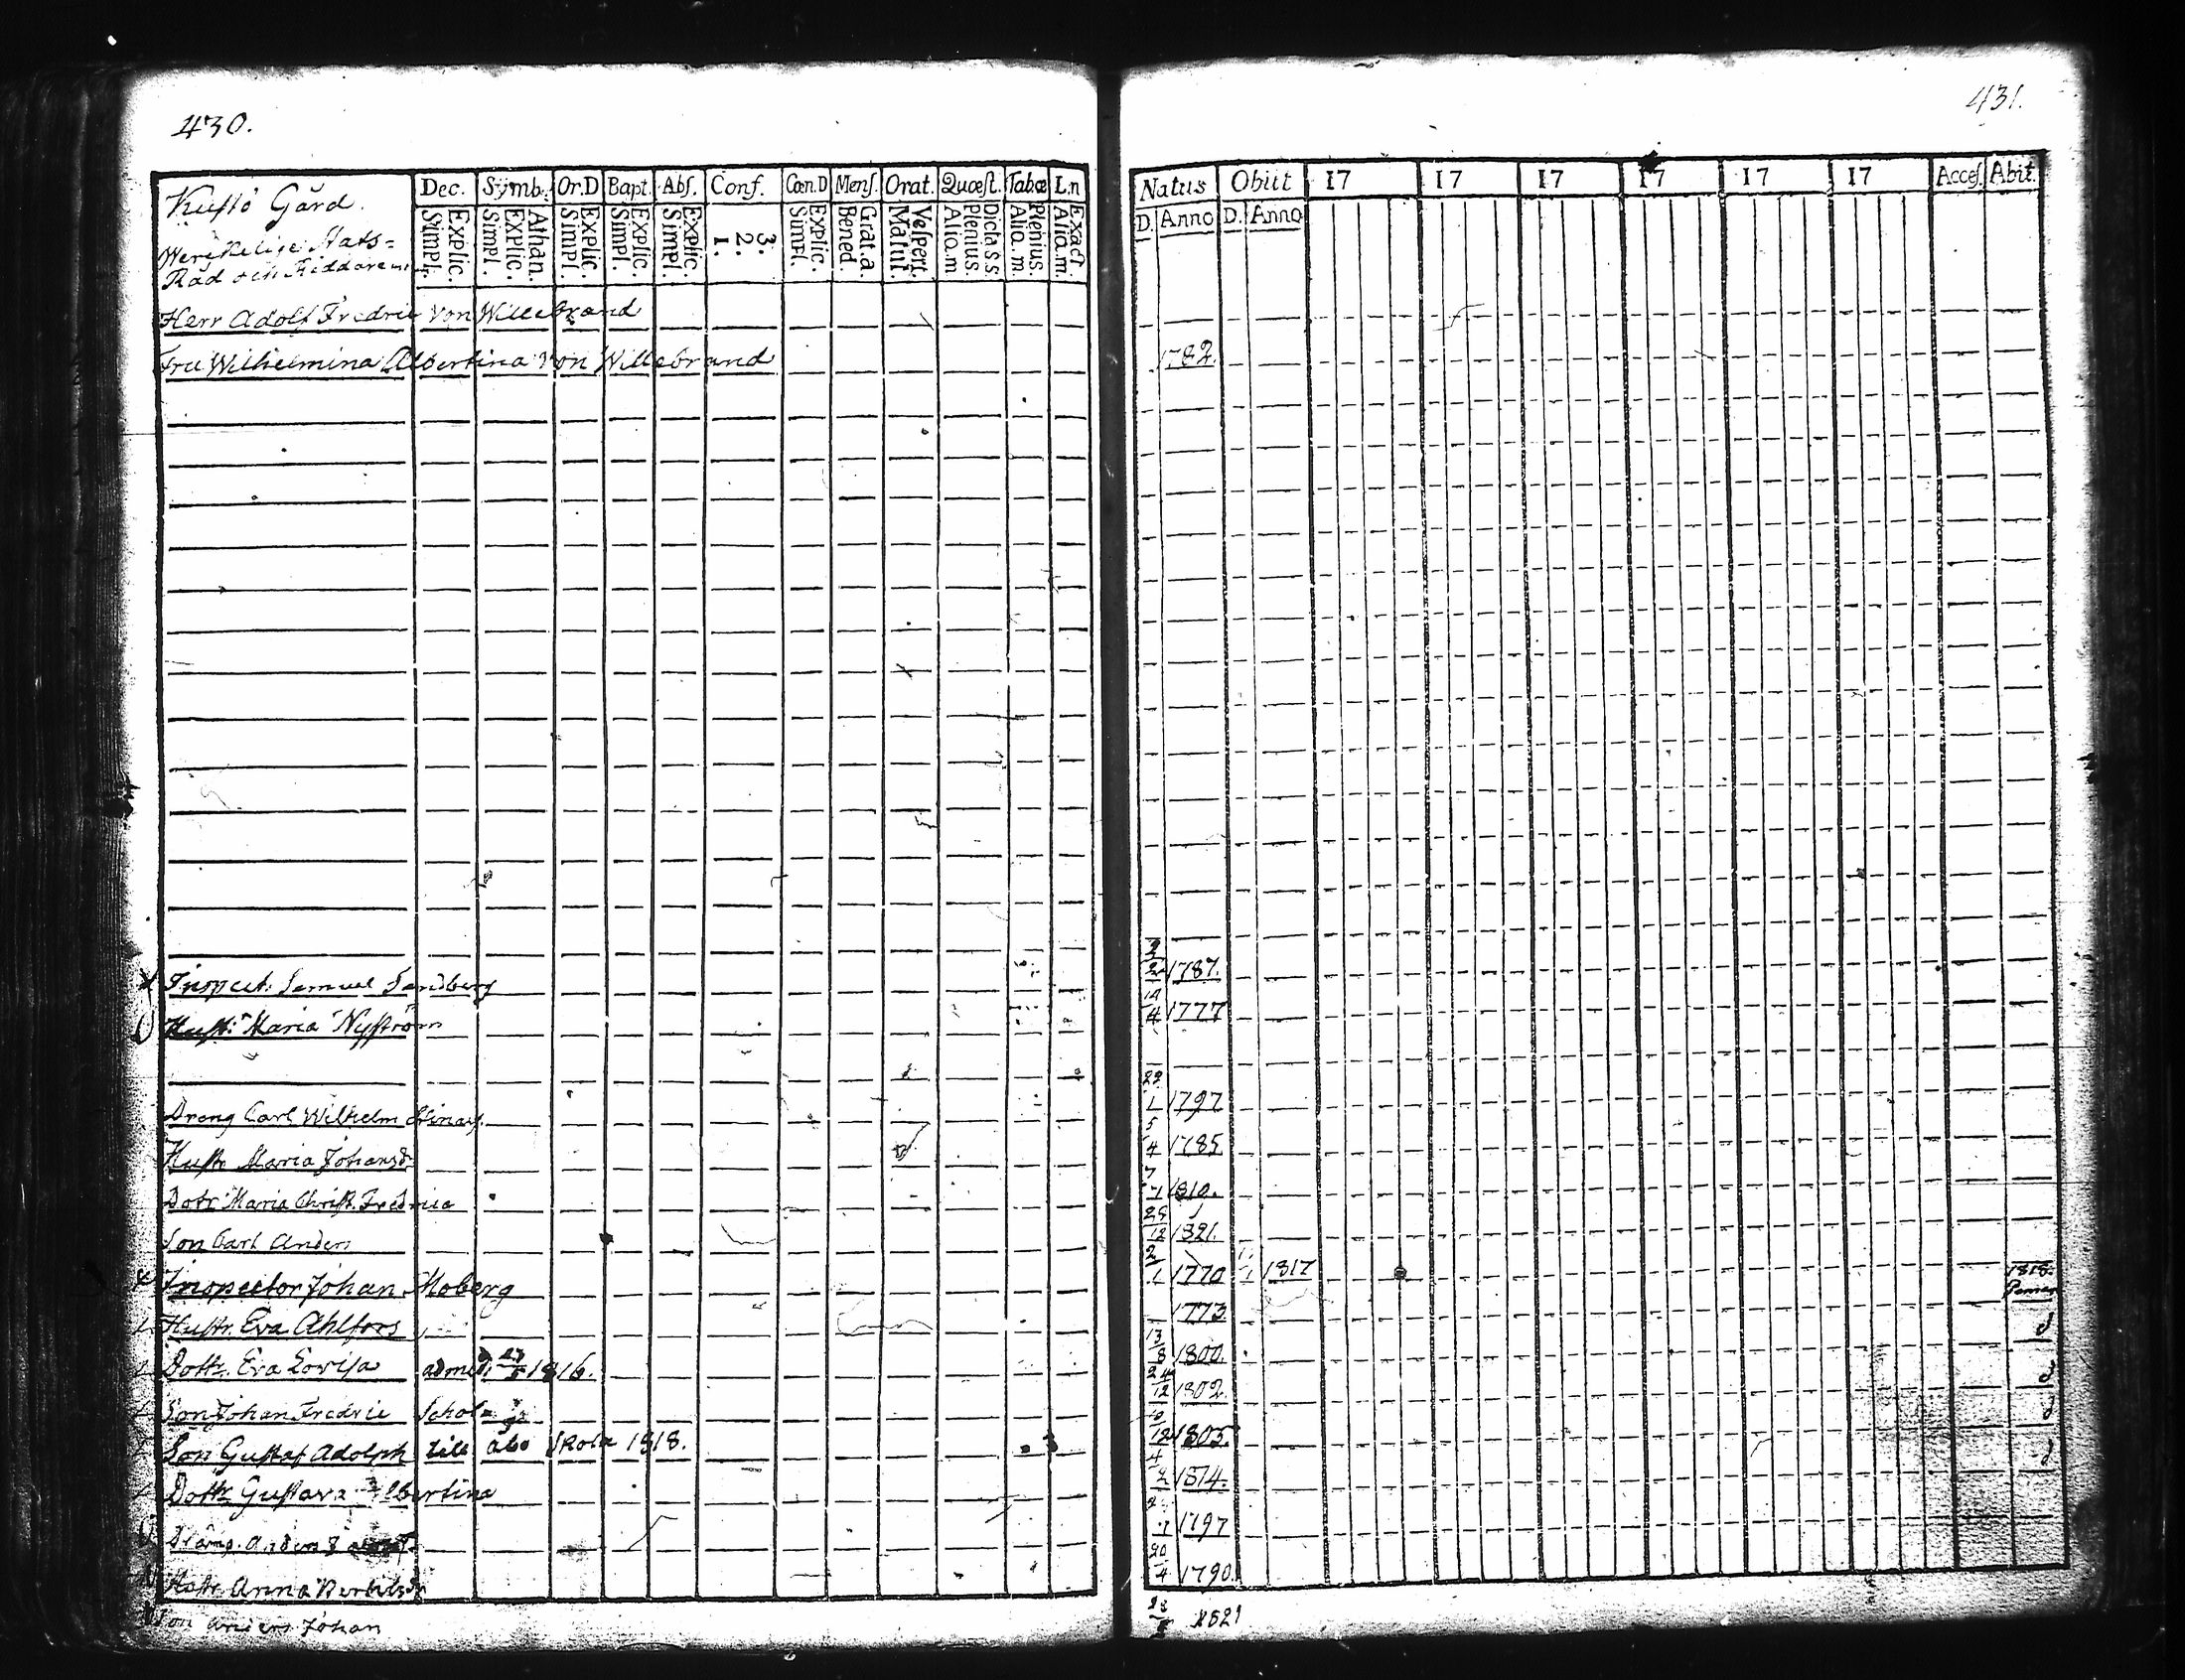 430.
Kustö Gård.
Werckelige Stats=
Råd och Riddaren
Dec. Symb. Or.D Bapt. Abs. Conf. Cœn.D Mens. Orat. Quœst. Tab.œ L.n
Explic. Simpl. Athan. Explic. Simpl. Explic. Simpl. Explic. Simpl. Explic. Simpl. 3. 2. 1. Explic. Simpl. Grat.a Bened. Vespert. Matut. Dicta s s Plenius. Alio.m Plenius. Alio.m. Exact. Alio.m.
Herr Adolf Fredric von Willebrand
Fru Wilhelmina Albertina von Willebrand
Inspect. Samuel Sandberg
Hust: Maria Nyström
Dreng Carl Wilhelm
Hustr Maria Johansdr
Dotr Maria Christ. Fredrica
Son Carl Anders
Inspector Johan Moberg
Hustr. Eva Ahlfors
Dottr. Eva Lovisa admed. 1816.
Son Johan Fredric Schol
Son Gustaf Adolph till Åbo Skola 1818.
Dottr Gustava Albertina
Dräng. Anders
Hustr Anna
Son Anders Johan
431.
Natus Obiit 17 17 17 17 17 17 Acces. Abit.
D. Anno D. Anno
1782.
2/2 1787.
4 1777
22/1 1797
5/4 1785
7/1 1819.
12 1821.
2/1 1770 1817 1818.
1773.
13/8 1800.
24/12 1802.
10/12 1805.
4/2 1814.
1797
20/4 1790.
1821